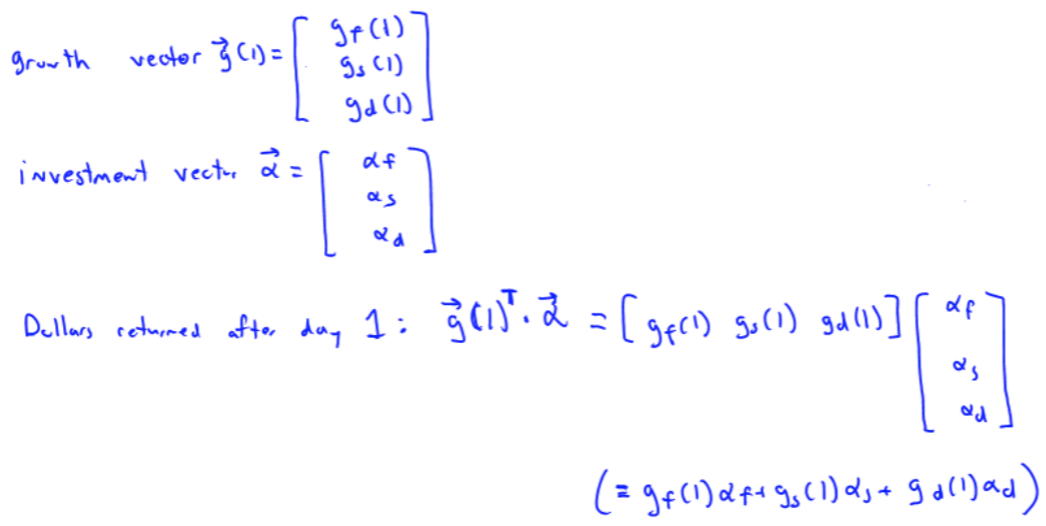 growth vector g⃗(1) = [ gf(1)
gs(1)
gd(1) ]
investment vector α⃗ = [ αf
αs
αd ]
Dollars returned after day 1 : g⃗(1)ᵀ · α⃗ = [ gf(1) gs(1) gd(1) ] [ αf
αs
αd ]
( = gf(1) αf + gs(1) αs + gd(1) αd )